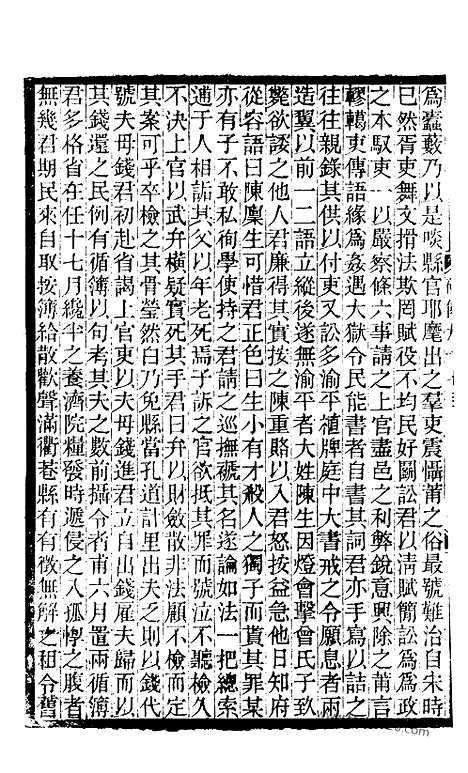 為蠹藪乃以是啖縣官耶麾出之羣吏震懾莆之俗最號難治自朱時
已然胥吏舞文搰法欺罔賦役不均民好鬭訟君以清賦簡訟爲爲政
之本馭吏一以嚴察條六事請之上官盡邑之利弊銳意興除之莆言
轇轕吏傳語緣爲姦遇大獄令民能書者自書其詞君亦手寫以詰之
往往親錄其供以付吏又訟多渝平植牌庭中大書戒之令願息者兩
造翼以前一二語立縱後遂無渝平者大姓陳生因燈會擊曾氏子玖
斃欲諉之他人君廉得其實按之陳重賂以入君怒按益急他日知府
從容語曰陳廩生可惜君正色曰生小有才殺人之獨子而貰其罪某
亦有子不敢私徇學使持之君請之巡撫褫其名遂論如法一把總索
逋于人相詬其父以年老死焉子訴之官欲抵其罪而號泣不聽檢久
不決上官以武弁橫疑實死其手君曰弁以財斂散非法顧不檢而定
其案可乎卒檢之其骨瑩然白乃免縣當孔道計里出夫夫之則以錢代
號夫毋錢君初起省謁上官吏以夫毋錢進君立自出錢雇夫歸而以
其錢還之民例有循簿以句考其夫之數前攝令者甫六月置兩循簿
君多格省在任十七月纔半之養濟院糧發時遞侵之入孤惸之腹者
無幾君期民來自取按簿給散歡聲滿衢巷縣有有徵無解之租令舊